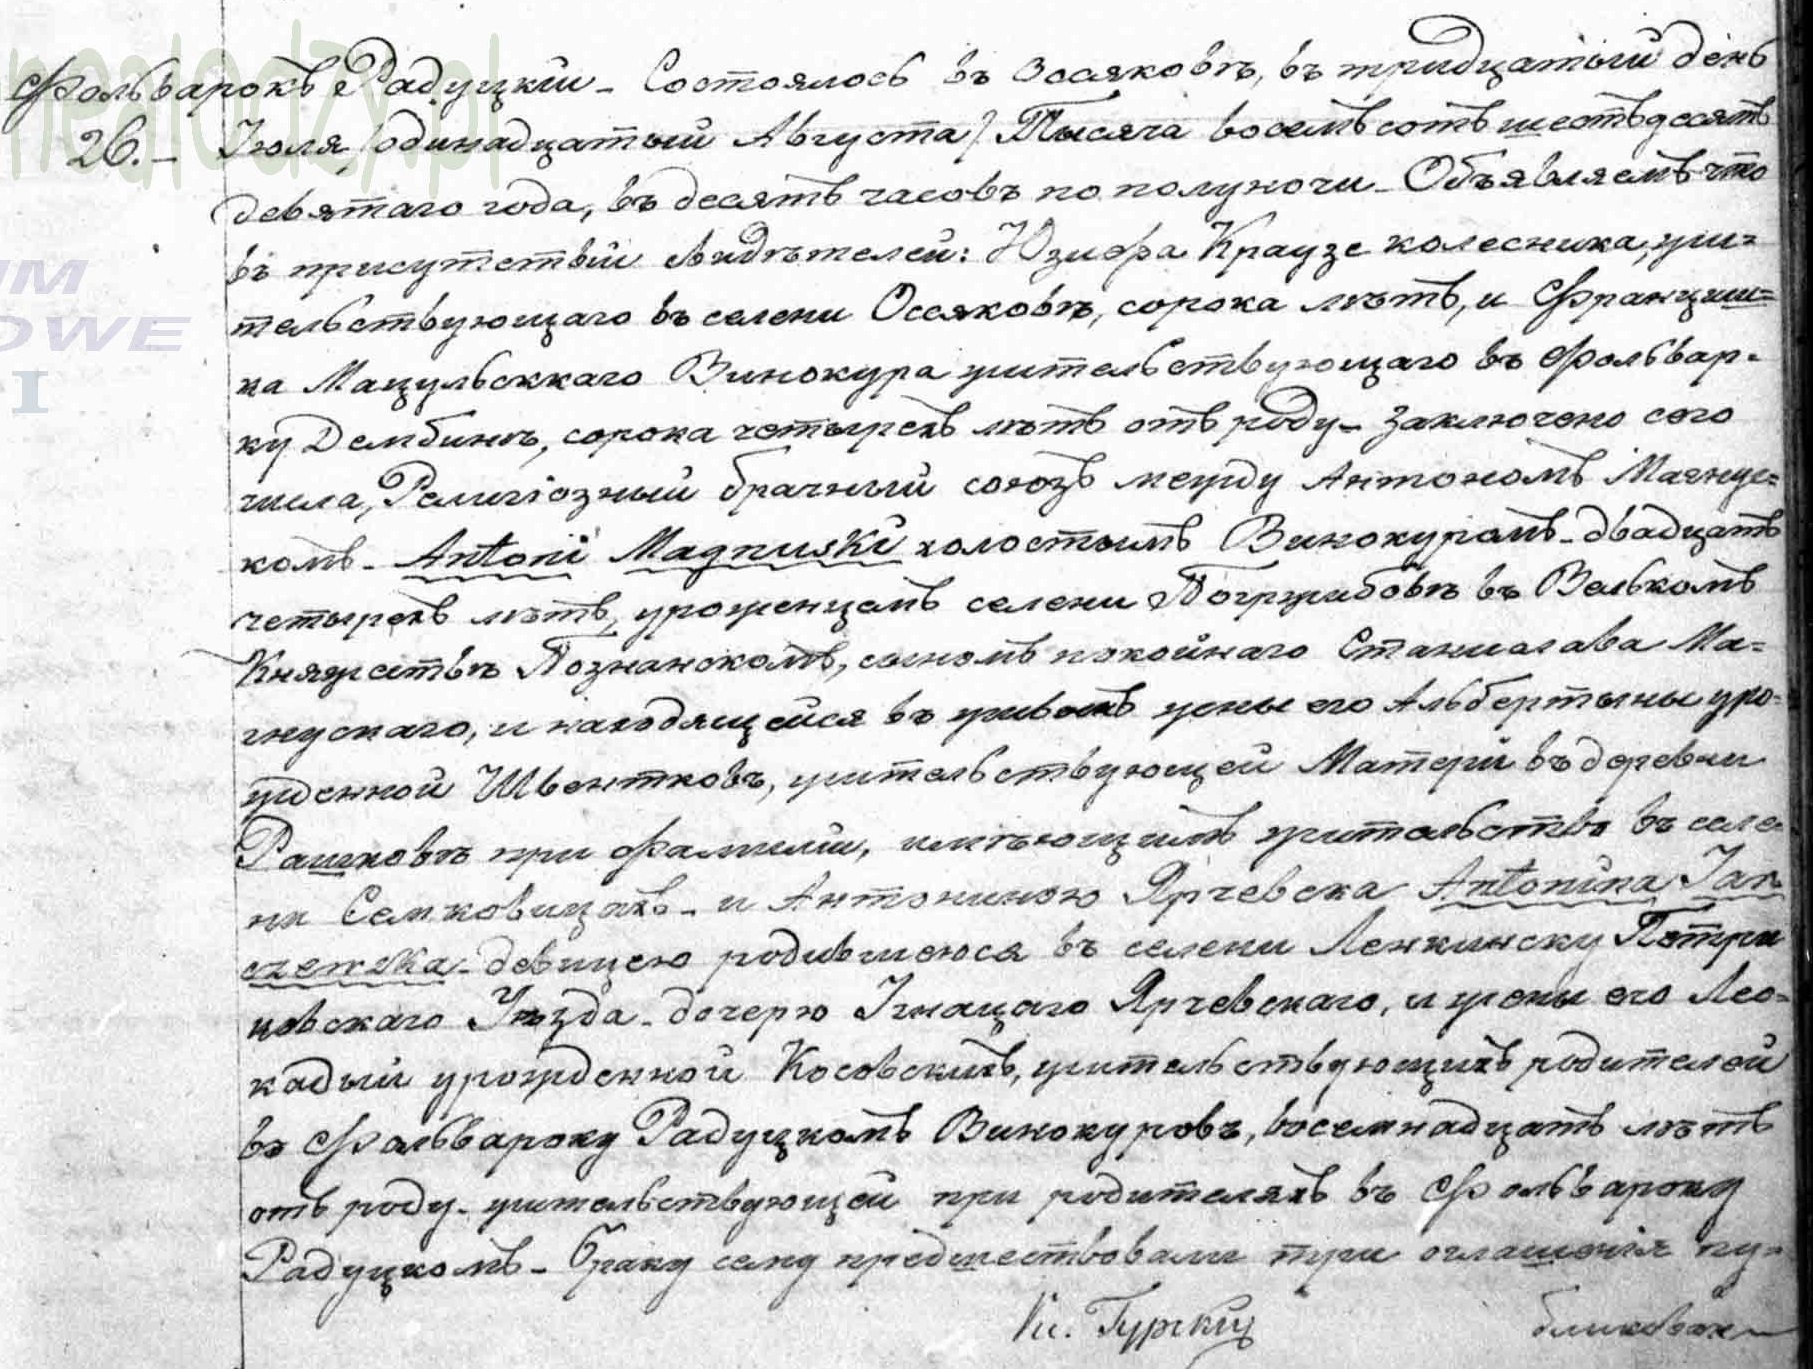 Фольварокъ Радуцкій – Состоялось въ Осяковѣ, въ тридцатый день
26. – Іюля /одинадцатый Августа/ Тысяча восемъсотъ шестьдесятъ
девятаго года, въ десять часовъ по полуночи – Объявляемъ что
въ присутствіи свидѣтелей: Юзефа Краузе колесника, жи=
тельствующаго въ селени Осяковѣ, сорока лѣтъ, и Францши=
ка Мацульскаго Винокура жительствующаго въ Фольвар=
ку Дембинѣ, сорока четырехъ лѣтъ отъ роду – заключено сего
числа, Религіозный брачный союзъ между Антономъ Магнус=
комъ – Antoni Magnuski холостымъ Винокуромъ – двадцать
четырехъ лѣтъ, уроженцемъ селени Погржибовѣ въ Велькомъ
Княжствѣ Познанскомъ, сыномъ покойнаго Станислава Ма=
гнускаго, и находящейся въ живыхъ жены его Альбертыны уро=
жденной Швентковъ, жительствующей Матери въ деревни
Рашковѣ при Фамилии, имѣющимъ жительство въ селе=
ни Семковицахъ – и Антониною Ярчевска Antonina Jar
czewska – девицею родившеюся въ селени Ленкинску Петри
ковскаго Уѣзда – дочерю Игнацаго Ярчевскаго, и жены его Лео=
кадыи урожденной Косовскихъ, жительствующихъ родителей
въ Фольвароку Радуцкомъ Винокуровъ, восемнадцать лѣтъ
отъ роду – жительствующей при родителяхъ въ Фольвароку
Радуцкомъ – Браку сему предшествовали три оглашенія пу=
бликован
Кс. Гурскій
nealodzy.pl
UM
OWE
I